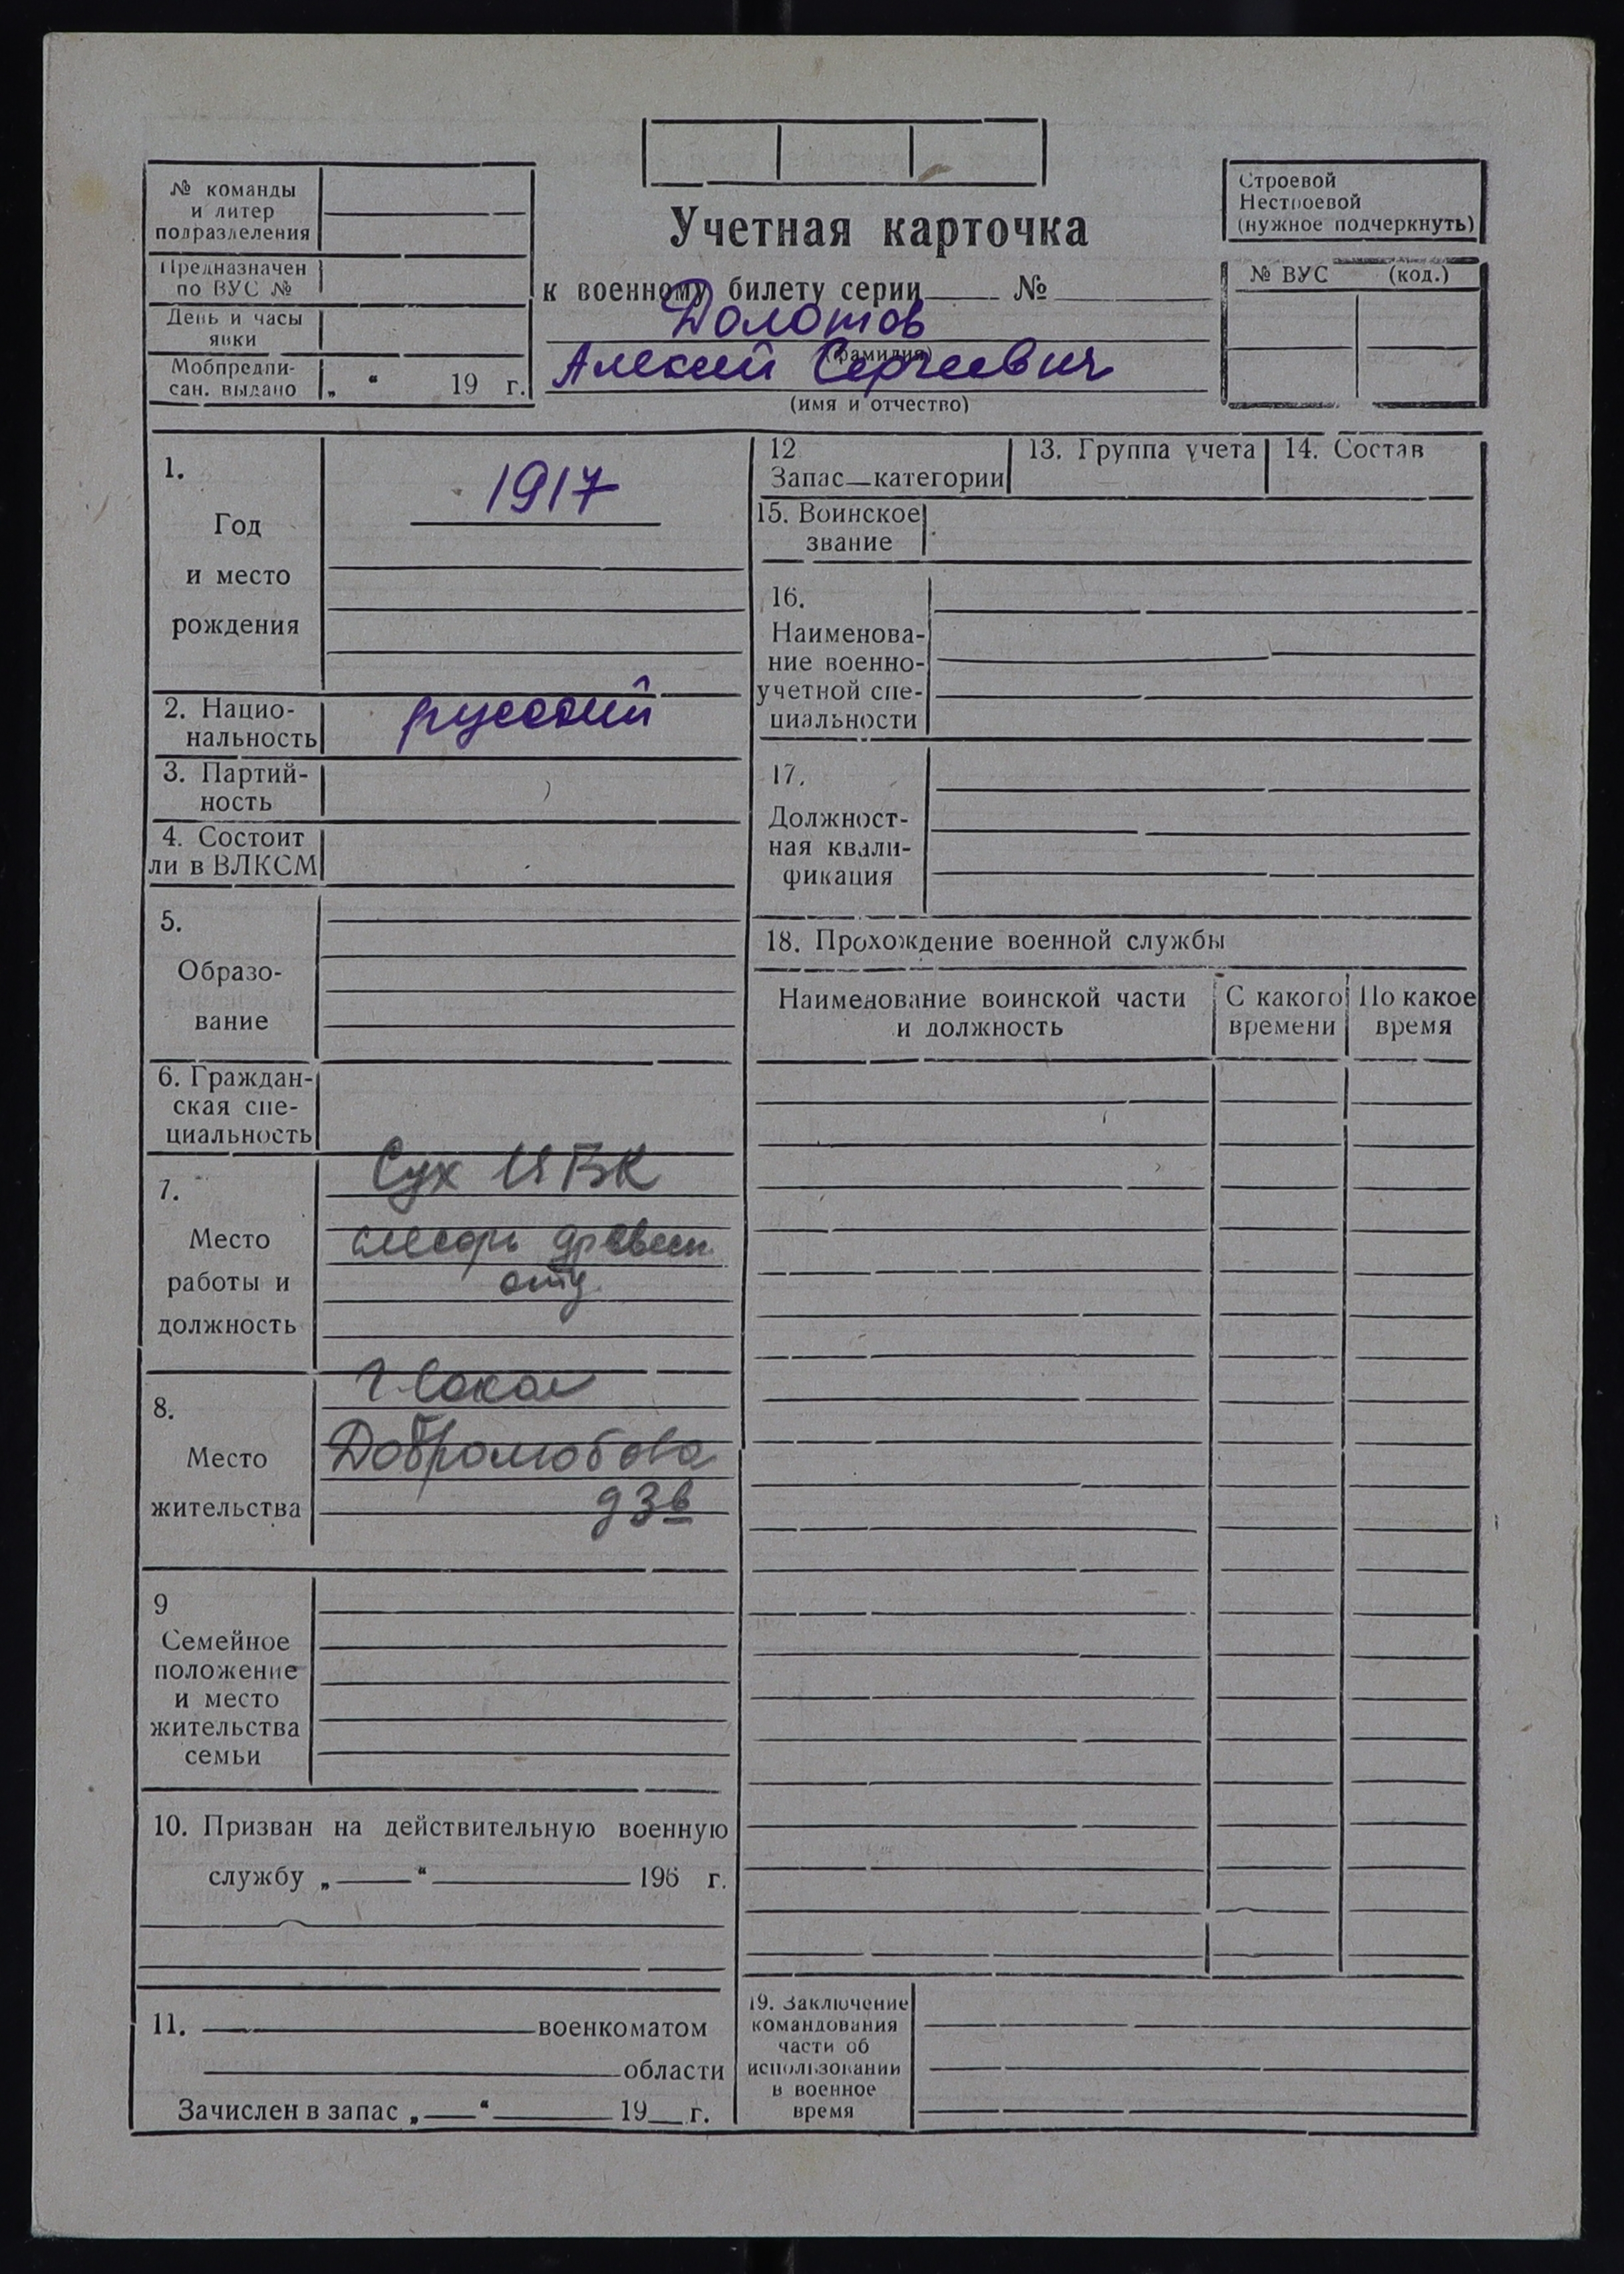 № команды
и литер
подразделения
Предназначен
по ВУС №
День и часы
явки
Мобпредпи-
сан. выдано „ “ 19 г.
Учетная карточка
к военному билету серии №
Долотов
(фамилия)
Алексей Сергеевич
(имя и отчество)
Строевой
Нестроевой
(нужное подчеркнуть)
№ ВУС (код.)
1.
Год
и место
рождения
1917
2. Нацио-
нальность
русский
3. Партий-
ность
4. Состоит
ли в ВЛКСМ
5.
Образо-
вание
6. Граждан-
ская спе-
циальность
7.
Место
работы и
должность
Сух ЦБК
слесарь древесн.
отд.
8.
Место
жительства
г Сокол
Добролюбова
д 3в
9
Семейное
положение
и место
жительства
семьи
10. Призван на действительную военную
службу „ “ 196 г.
11. военкоматом
области
Зачислен в запас „ “ 19 г.
12
Запас—категории
13. Группа учета
14. Состав
15. Воинское
звание
16.
Наименова-
ние военно-
учетной спе-
циальности
17.
Должност-
ная квали-
фикация
18. Прохождение военной службы
Наименование воинской части
и должность
С какого
времени
По какое
время
19. Заключение
командования
части об
использовании
в военное
время